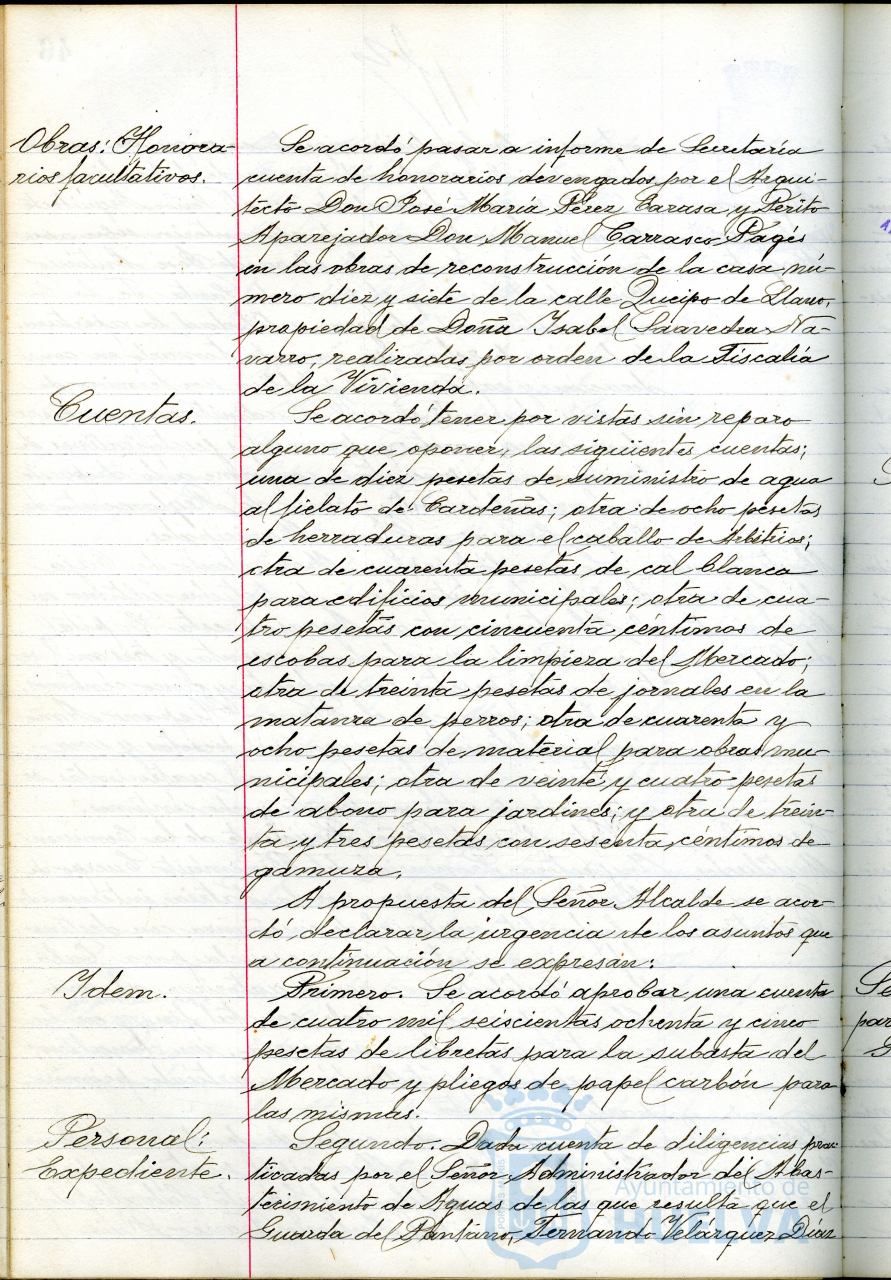 Obras: Honora-
rios facultativos.
Se acordó pasar a informe de Secretaría
cuenta de honorarios devengados por el Arqui-
tecto Don José María Pérez Carasa y Perito
Aparejador Don Manuel Carrasco Pagés
en las obras de reconstrucción de la casa nú-
mero diez y siete de la calle Queipo de Llano,
propiedad de Doña Isabel Saavedra Na-
varro, realizadas por orden de la Fiscalía
de la Vivienda.
Cuentas.
Se acordó tener por vistas sin reparo
alguno que oponer, las siguientes cuentas;
una de diez pesetas de suministro de agua
al fielato de Cardeñas; otra de ocho pesetas
de herraduras para el caballo de Arbitrios;
otra de cuarenta pesetas de cal blanca
para edificios municipales; otra de cua-
tro pesetas con cincuenta céntimos de
escobas para la limpieza del Mercado;
otra de treinta pesetas de jornales en la
matanza de perros; otra de cuarenta y
ocho pesetas de material para obras mu-
nicipales; otra de veinte y cuatro pesetas
de abono para jardines; y otra de trein-
ta y tres pesetas con sesenta céntimos de
gamuza.
A propuesta del Señor Alcalde se acor-
dó declarar la urgencia de los asuntos que
a continuación se expresan:
Idem.
Primero. Se acordó aprobar una cuenta
de cuatro mil seiscientas ochenta y cinco
pesetas de libretas para la subasta del
Mercado y pliegos de papel carbón para
las mismas.
Personal:
Expediente.
Segundo. Dada cuenta de diligencias prac-
ticadas por el Señor Administrador del Abas-
tecimiento de Aguas de las que resulta que el
Guarda del Pantano, Fernando Velázquez Díaz
Ayuntamiento de
HUELVA